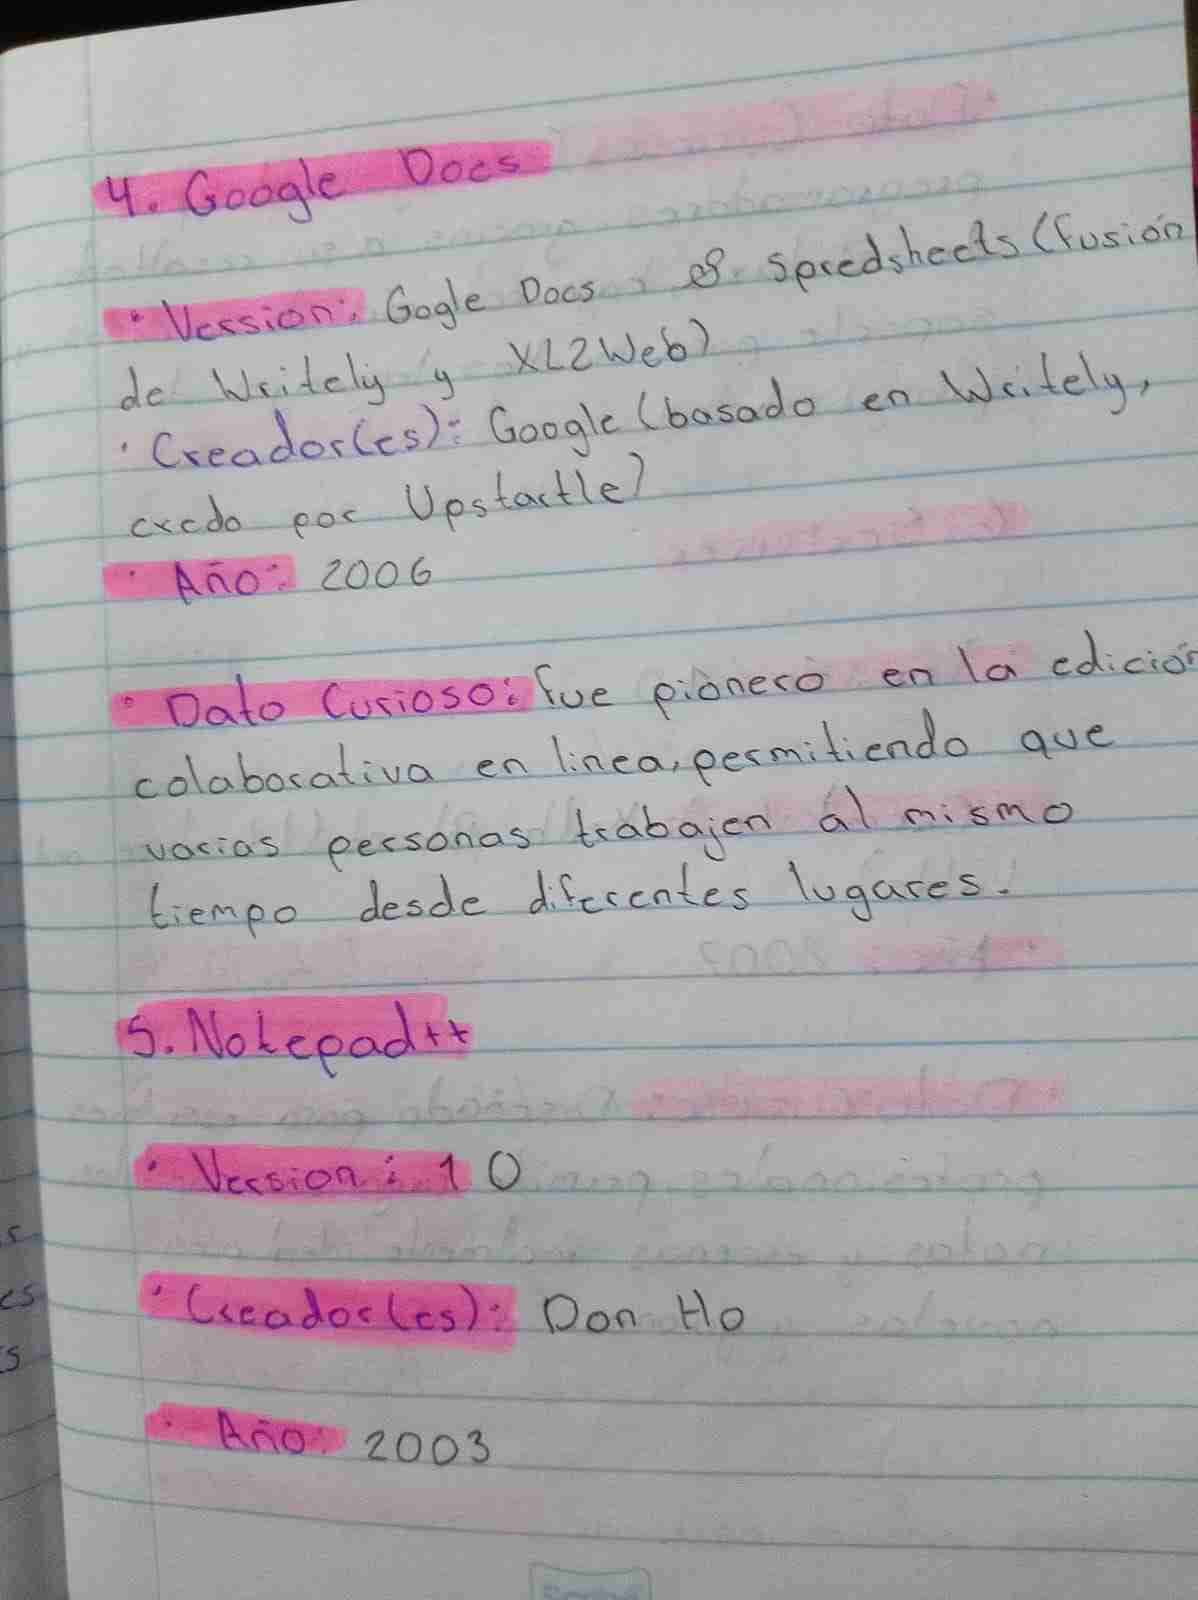 4. Google Docs
• Version: Gogle Docs & Spredsheets (fusión
de Writely y XL2Web)
• Creador(es): Google (basado en Writely,
credo por Upstartle)
• Año: 2006
• Dato Curioso: fue pionero en la edición
colaborativa en linea, permitiendo que
varias personas trabajen al mismo
tiempo desde diferentes lugares.
5. Notepad++
• Version: 1 0
• Creador(es): Don Ho
• Año: 2003